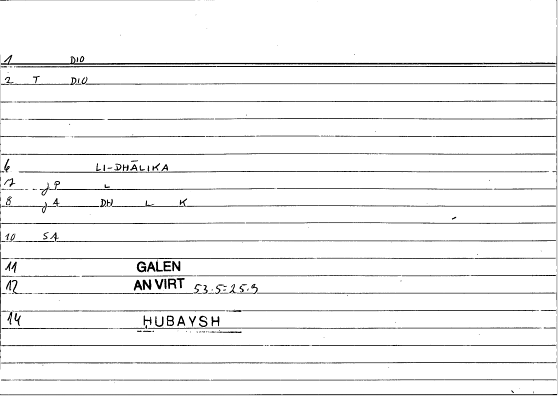 1 DIO
2 T DIO
6 LI-DHĀLIKA
7 jP L
8 jA DH L K
10 SA
11 GALEN
12 AN VIRT 53.5=25.9
14 ḤUBAYSH